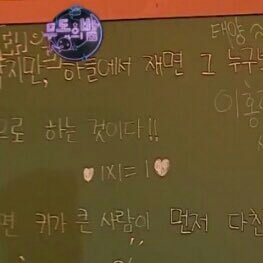 무도의밤
태양~
지만, 하늘에서 재면 그 누구
이홍
으로 하는 것이다!!
♥|x|=1♥
면 키가 큰 사람이 먼저 다친